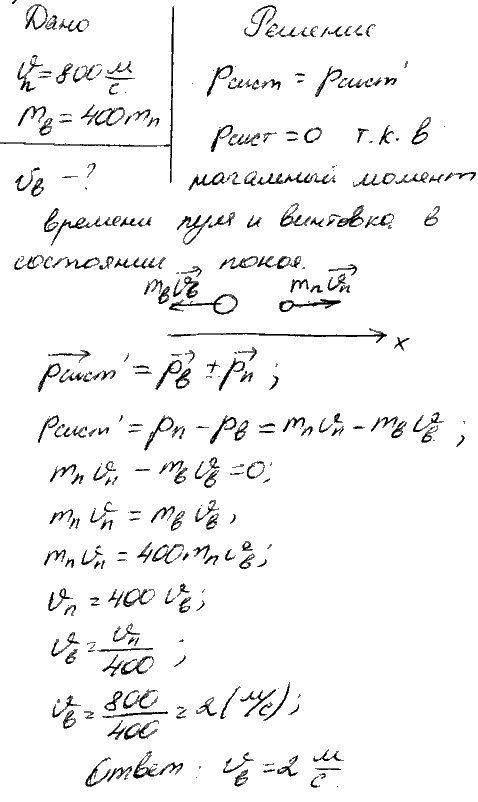 Дано
Решение
υп = 800 м/с
mв = 400 mп
υв – ?
Pсист = Pсист'
Pсист = 0 т.к. в
начальный момент
времени пуля и винтовка в
состоянии покоя.
mвυв→ mпυп→
x
Pсист'→ = Pв→ ± Pп→ ;
Pсист' = Pп – Pв = mпυп – mвυв ;
mпυп – mвυв = 0;
mпυп = mвυв,
mпυп = 400 mпυв;
υп = 400 υв;
υв = υп/400 ;
υв = 800/400 = 2 (м/с);
Ответ: υв = 2 м/с